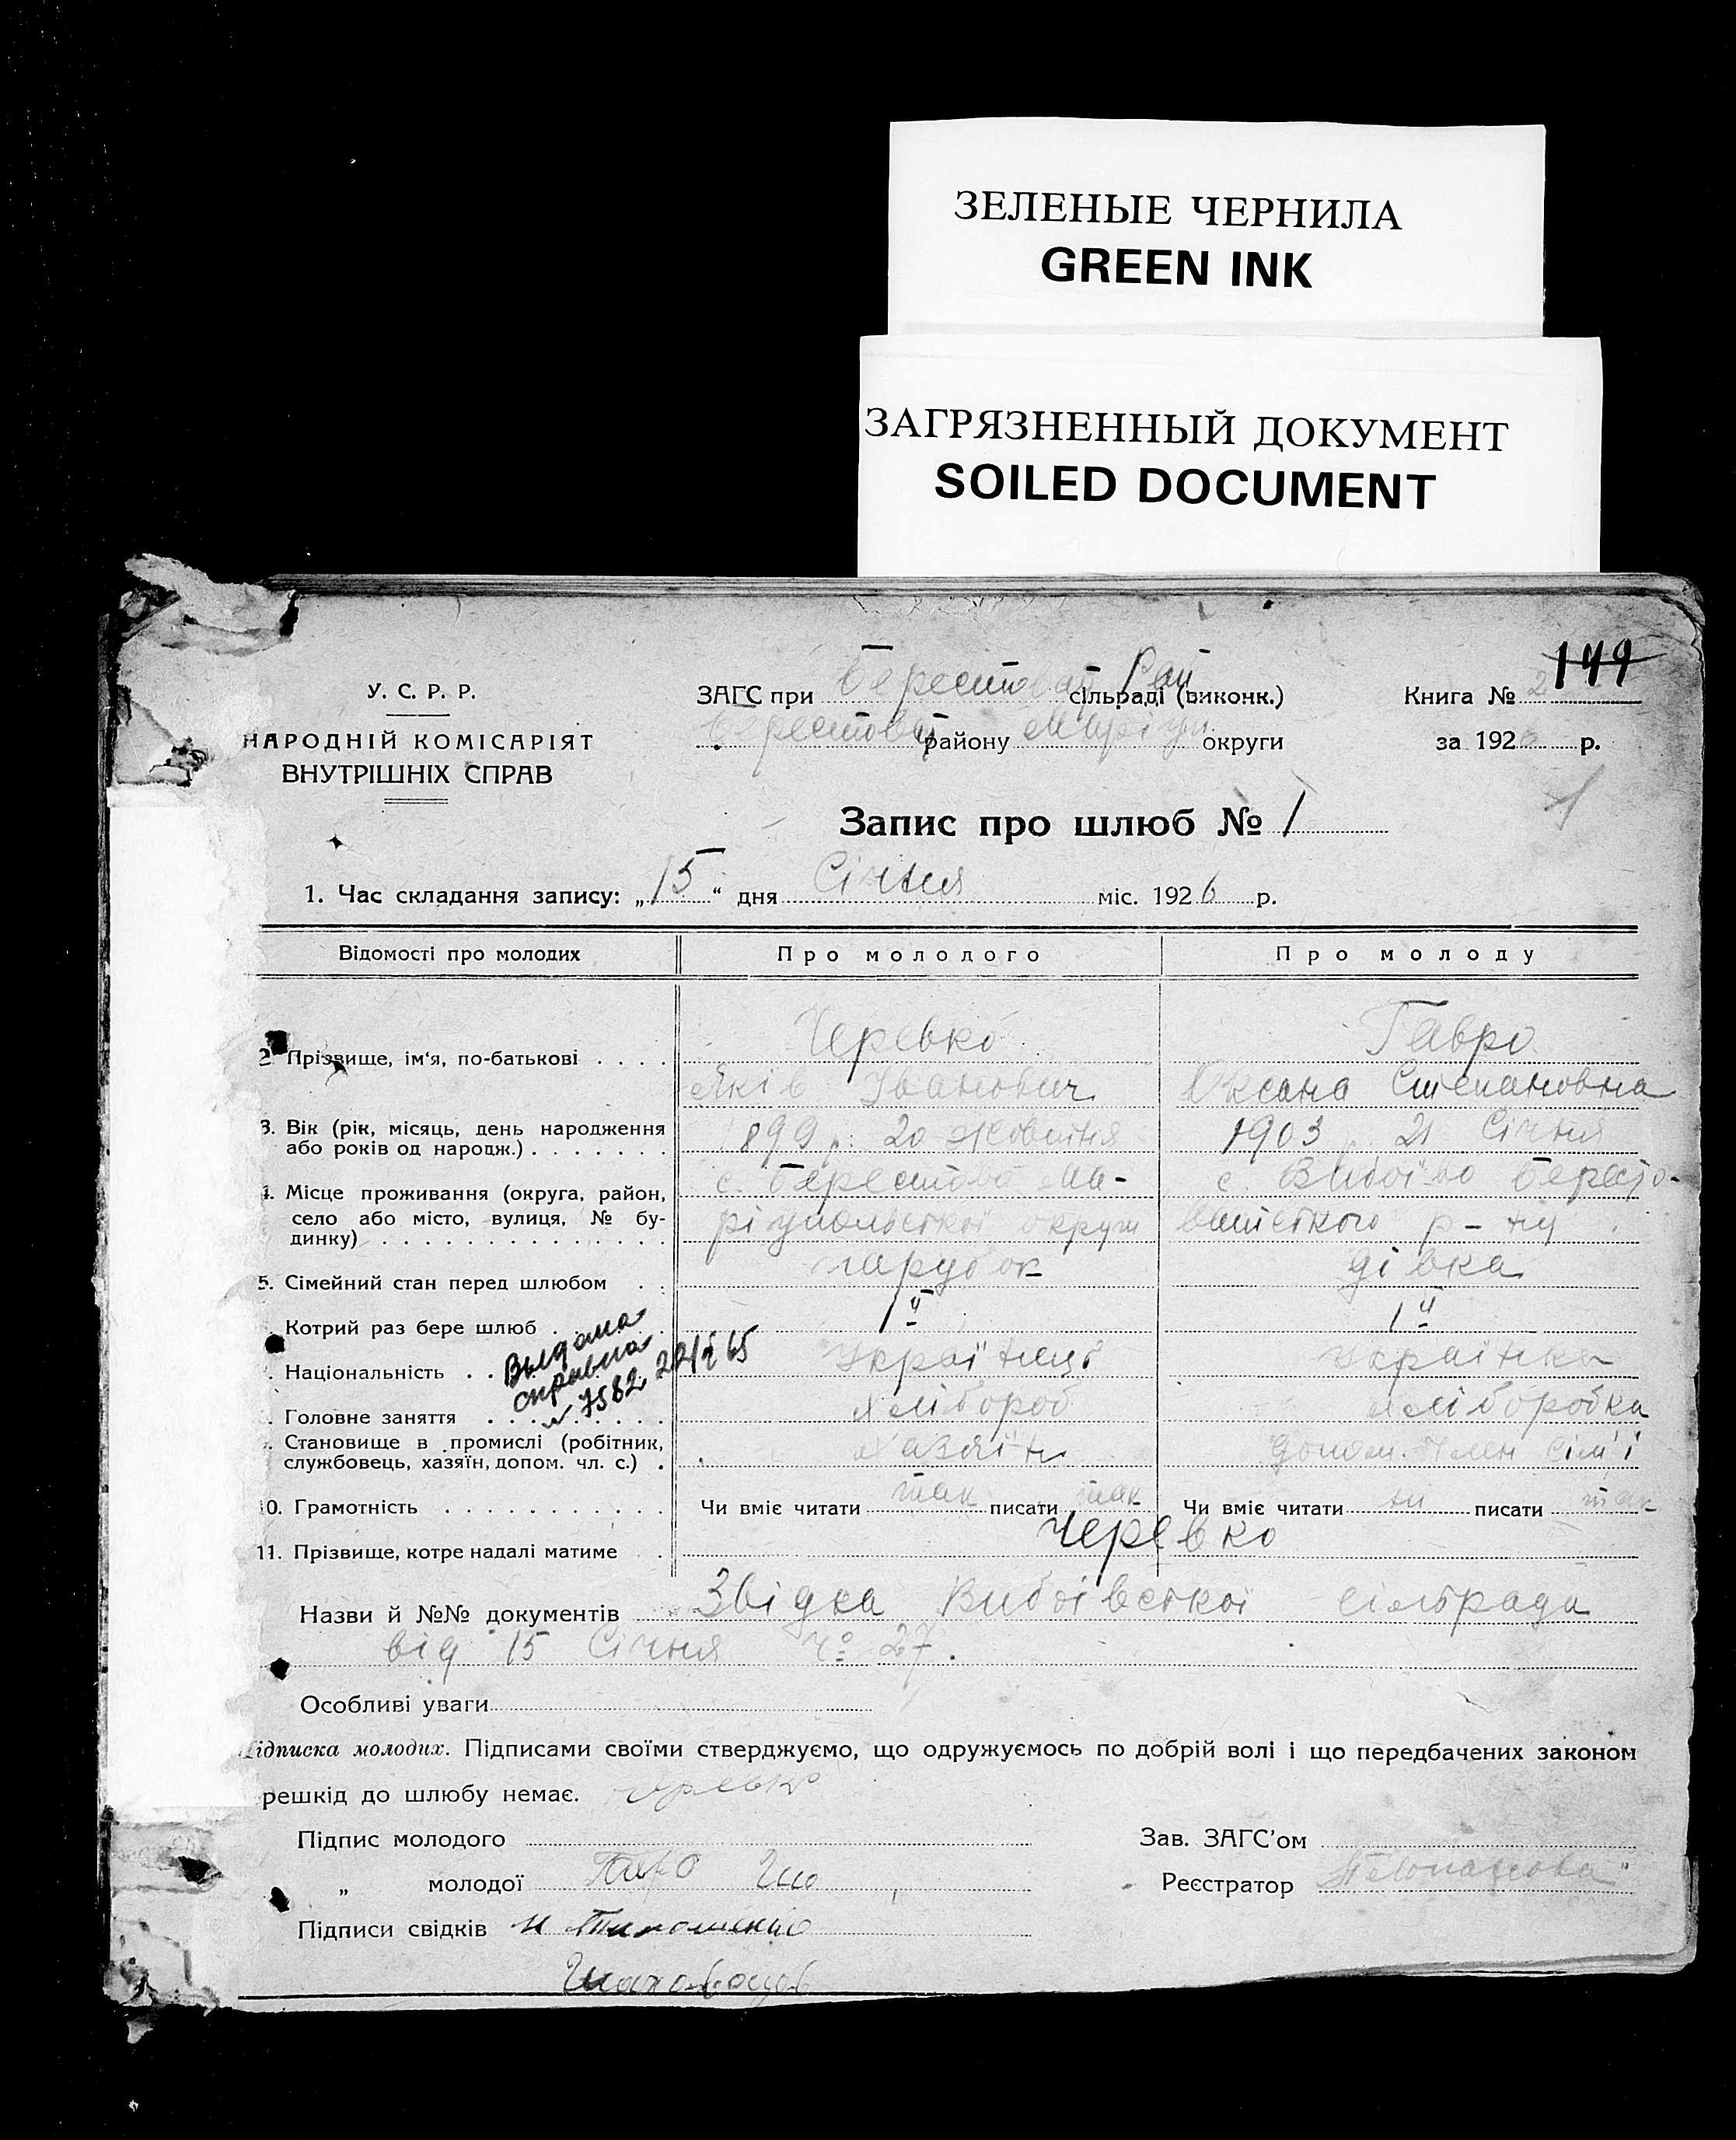 ЗЕЛЕНЫЕ ЧЕРНИЛА
GREEN INK
ЗАГРЯЗНЕННЫЙ ДОКУМЕНТ
SOILED DOCUMENT
149
У. С. Р. Р.
НАРОДНІЙ КОМІСАРІЯТ
ВНУТРІШНІХ СПРАВ
ЗАГС при Берестовай Рай сільраді (виконк.)
Берестовай району Маріуп округи
Книга № 2
за 1926 р.
1
Запис про шлюб № 1
1. Час складання запису: „15“ дня Січня міс. 1926 р.
Відомості про молодих
Про молодого
Про молоду
2. Прізвище, ім‘я, по-батькові . . . .
Черевко
Яків Іванович
Гавро
Оксана Степановна
3. Вік (рік, місяць, день народження
або років од народж.) . . . . . . .
899 р. 20 Жовтня
1903 р. 21 Січня
4. Місце проживання (округа, район,
село або місто, вулиця, № бу-
динку) . . . . . . . . . . . . . .
с. Берестово Ма-
ріупольської округи
с. Вибоїво Бересто-
ватського р-ну
5. Сімейний стан перед шлюбом . .
парубок
дівка
Котрий раз бере шлюб . . . .
1й
1й
Національність . .
Українець
Українка
Выдана
справка
№ 7582, 22/X 65
Головне заняття . . . . . . . .
хлібороб
хліборобка
Становище в промислі (робітник,
службовець, хазяїн, допом. чл. с.) .
хазяїн
допом. член сім'ї
10. Грамотність . . . . . . . . . . .
Чи вміє читати так писати так
Чи вміє читати ні писати так
11. Прізвище, котре надалі матиме .
Черевко
Назви й №№ документів Звідка Вибоївської сільрада
від 15 Січня № 27.
Особливі уваги
Підписка молодих. Підписами своїми стверджуємо, що одружуємось по добрій волі і що передбачених законом
решкід до шлюбу немає. Черевко
Підпис молодого
Зав. ЗАГС’ом
„ молодої
Реєстратор
Підписи свідків